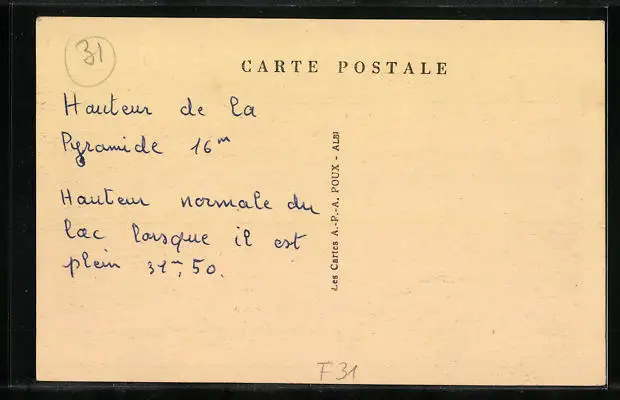 31
CARTE POSTALE
Hauteur de la
Pyramide 16m
Hauteur normale du
lac lorsque il est
plein 31m,50.
Les Cartes A.-P.-A. POUX - ALBI
F31